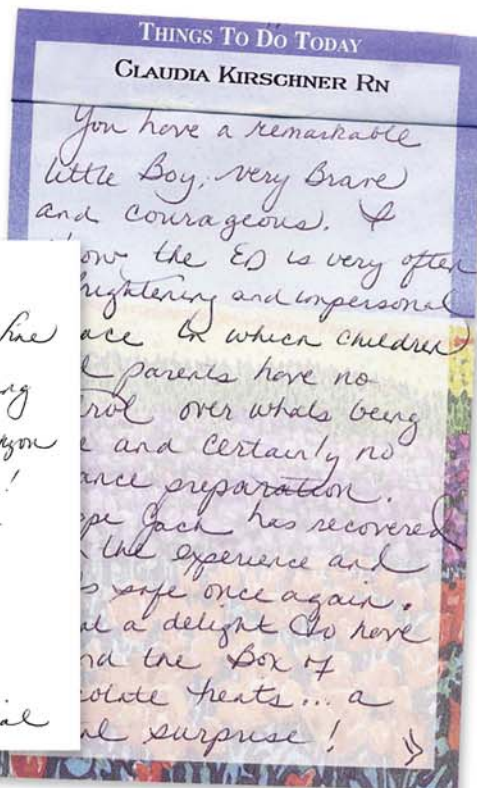 THINGS TO DO TODAY
CLAUDIA KIRSCHNER RN
You have a remarkable
little Boy, very Brave
and courageous. I
the ED is very often
frightening and impersonal
in which children
parents have no
over whats being
and certainly no
preparation.
Jack has recovered
the experience and
safe once again.
a delight to have
the Box of
treats... a
surprise!
fine
!